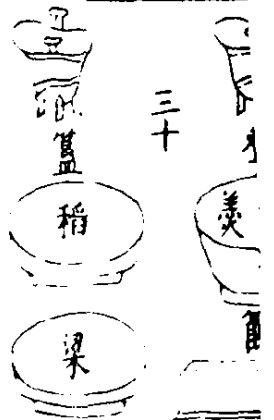 羹
三十
簠
稻
梁